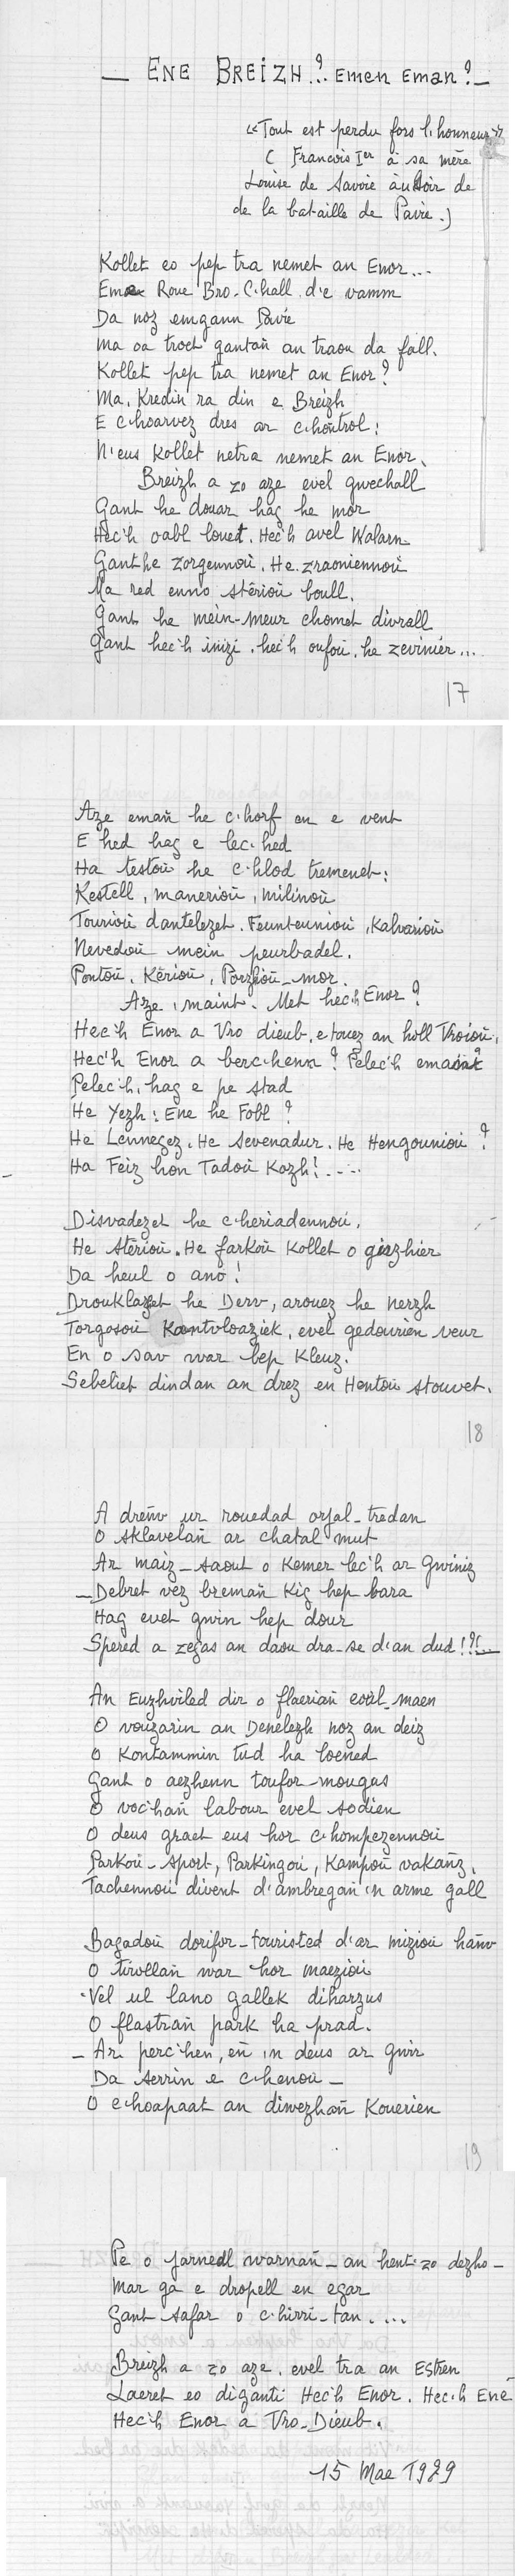 _ ENE BREIZH ?.. Emen Eman ? _
«Tout est perdu fors l'honneur»
( François Ier à sa mère
Louise de Savoie au soir de
de la bataille de Pavie.)
Kollet eo pep tra nemet an Enor...
Eme Roue Bro-C'hall d'e vamm
Da noz emgann Pavie
Ma oa troet gantañ an traou da fall.
Kollet pep tra nemet an Enor ?
Ma, Kredin ra din e Breizh
E c'hoarvez dres ar c'hontrol :
N'eus kollet netra nemet an Enor.
Breizh a zo aze evel gwechall
Gant he douar hag he mor
Hec'h oabl louet. Hec'h avel Walarn
Gant he zorgennoù. He zraoniennoù
Ma red enno stêrioù boull.
Gant he mein-meur chomet divrall
Gant hec'h inizi. hec'h oufoù. he zevinier...
17
Aze emañ he c'horf en e vent
E hed hag e lec'hed
Ha testoù he c'hlod tremenet :
Kestell, manerioù, milinoù
Tourioù dantelezet. Feunteunioù, Kalvarioù
Nevedoù mein peurbadel.
Pontoù, Kêrioù, Porzhioù-mor.
Aze, maint. Met hec'h Enor ?
Hec'h Enor a Vro dieub, e touez an holl Vroioù,
Hec'h Enor a berc'henn ? Pelec'h emañ ?
Pelec'h, hag e pe stad
He Yezh : Ene he Fobl ?
He Lennegez. He Sevenadur. He Hengounioù ?
Ha Feiz hon Tadoù Kozh !....
Disvadezet he c'heriadennoù,
He stêrioù. He farkoù kollet o gizhier
Da heul o ano !
Drouklazet he Derv, arouez he nerzh
Torgosoù Kantvloaziek, evel gedourien veur
En o sav war bep Kleuz.
Sebeliet dindan an drez en Hentoù stouvet.
18
A dreñv ur rouedad orjal-tredan
O sklavelañ ar chatal mut
Ar maiz-saout o kemer lec'h ar gwiniz
_ Debret vez bremañ kig hep bara
Hag evet gwin hep dour
Spered a zegas an daou dra-se d'an dud !?!...
An Euzhviled dir o flaeriañ eoul-maen
O vouzarin an Denelezh noz an deiz
O kontammin tud ha loened
Gant o aezhenn toufor-mougus
O voc'hañ labour evel sodien
O deus graet eus hor c'hompezennoù
Parkoù-sport, Parkingoù, Kampoù vakañs,
Tachennoù divent d'ambregañ 'n arme gall
Bagadoù dorifor-touristed d'ar mizioù hañv
O tirollañ war hor maezioù
'Vel ul lano gallek diharzus
O flastrañ park ha prad.
_ Ar perc'hen, eñ 'n deus ar gwir
Da serrin e c'henoù _
O c'hoapaat an diwezhañ Kouerien
19
Pe o jarneal warnañ _ an hent zo dezho _
Mar ga e dropell en egar
Gant safar o c'hirri-tan....
Breizh a zo aze, evel tra an Estren
Laeret eo diganti Hec'h Enor. Hec'h Ene
Hec'h Enor a Vro-Dieub.
15 Mae 1979